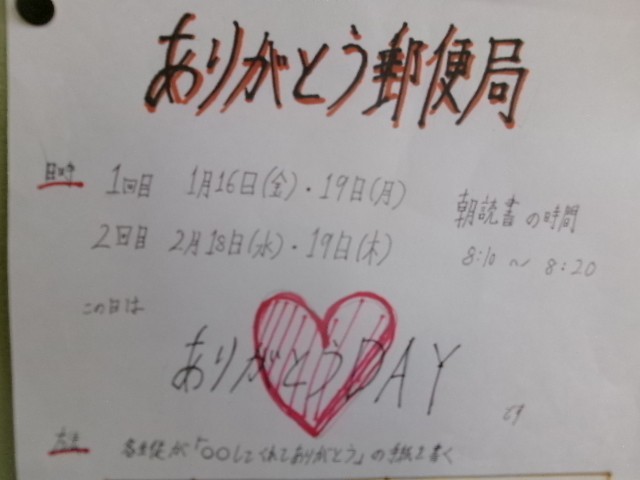 ありがとう郵便局
日時 1回目 1月16日(金)・19日(月)
朝読書の時間
2回目 2月18日(水)・19日(木)
8:10 〜 8:20
この日は
ありがとうDAY
方法 各生徒が「○○してくれてありがとう」の手紙を書く